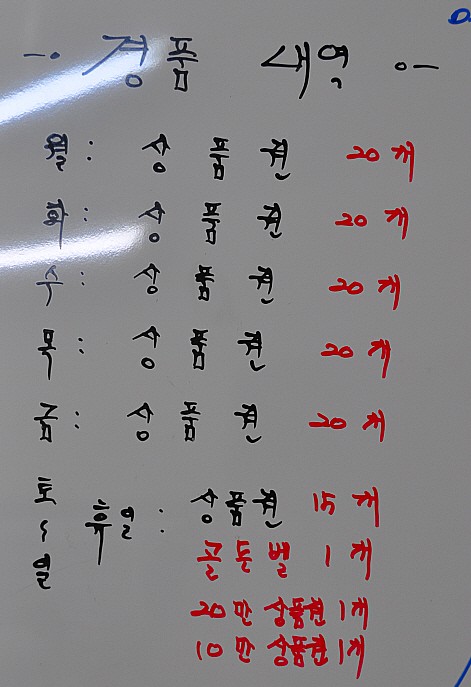 경품 내역
월 : 상품권 20개
화 : 상품권 20개
수 : 상품권 20개
목 : 상품권 20개
금 : 상품권 20개
토~일 휴일 : 상품권 15개
골든벨 1개
20만 상품권 1개
10만 상품권 1개